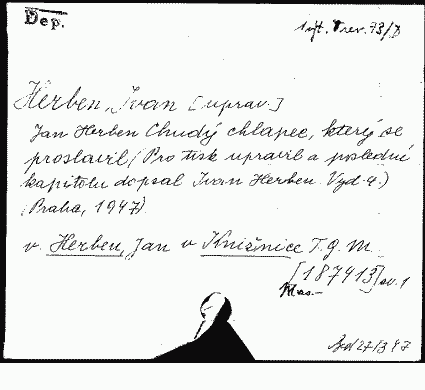 Dep.
Herben, Ivan [uprav.]
Jan Herben Chudý chlapec, který se
proslavil. (Pro tisk upravil a poslední
kapitolu dopsal Ivan Herben. Vyd. 4.)
(Praha, 1947).
v. Herben, Jan v Knižnice T. G. M.
[187913] sv. 1
Mas.